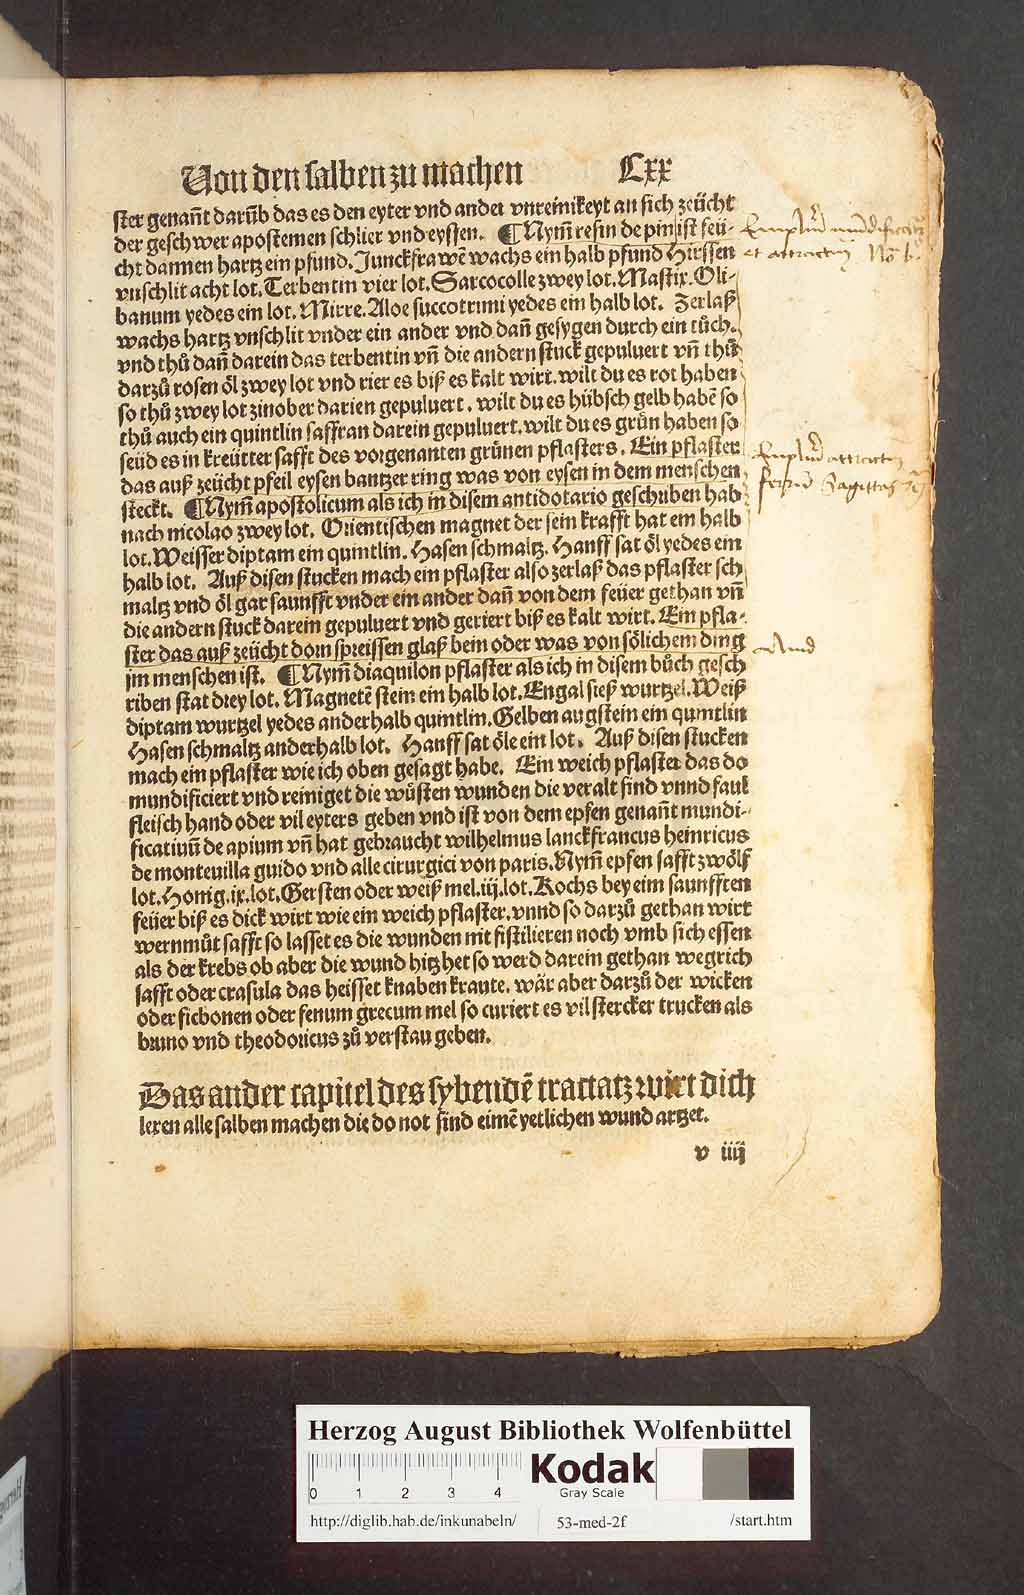 Von den salben zu machen Cxx
ster genañt darũb das es den eyter vnd ander vnreinikeyt an sich zeücht
der geschwer apostemen schlier vnd eyssen. ¶ Nym̃ resin de pini ist feü-
cht dannen hartz ein pfund. Junckfrawẽ wachs ein halb pfund Hirssen
vnschlit acht lot. Terbentin vier lot. Sarcocolle zwey lot. Mastix. Oli-
banum yedes ein lot. Mirre. Aloe succotrini yedes ein halb lot. Zerlaß
wachs hartz vnschlit vnder ein ander vnd dañ gesygen durch ein tůch.
vnd thů dañ darein das terbentin vñ die andern stuck gepuluert vñ thů
darzů rosen öl zwey lot vnd rier es biß es kalt wirt. wilt du es rot haben
so thů zwey lot zinober darien gepuluert. wilt du es hübsch gelb habẽ so
thů auch ein quintlin saffran darein gepuluert. wilt du es grün haben so
seüd es in kreütter safft des vorgenanten grünen pflasters. Ein pflaster
das auß zeücht pfeil eysen bantzer ring was von eysen in dem menschen
steckt. ¶ Nym̃ apostolicum als ich in disem antidotario geschriben hab
nach nicolao zwey lot. Orientischen magnet der sein krafft hat ein halb
lot. Weisser diptam ein quintlin. Hasen schmaltz. Hanff sat öl yedes ein
halb lot. Auß disen stucken mach ein pflaster also zerlaß das pflaster sch
maltz vnd öl gar saunfft vnder ein ander dañ von dem feüer gethan vñ
die andern stuck darein gepuluert vnd geriert biß es kalt wirt. Ein pfla-
ster das auß zeücht dorn spreissen glaß bein oder was von sölichem ding
im menschen ist. ¶ Nym̃ diaquilon pflaster als ich in disem bůch gesch
riben stat drey lot. Magnetẽ stein ein halb lot. Engal sieß wurtzel. Weiß
diptam wurtzel yedes anderhalb quintlin. Gelben augstein ein quintlin
Hasen schmaltz anderhalb lot. Hanff sat öle ein lot. Auß disen stucken
mach ein pflaster wie ich oben gesagt habe. Ein weich pflaster das do
mundificiert vnd reiniget die wůsten wunden die veralt sind vnnd faul
fleisch hand oder vil eyters geben vnd ist von dem epfen genañt mundi-
ficatiuũ de apium vñ hat gebraucht wilhelmus lanckfrancus heinricus
de monteuilla guido vnd alle cirurgici von paris. Nym̃ epfen safft zwölf
lot. Honig. ix. lot. Gersten oder weiß mel. iij. lot. Kochs bey eim saunfften
feüer biß es dick wirt wie ein weich pflaster. vnnd so darzů gethan wirt
wermůt safft so lasset es die wunden nit fistilieren noch vmb sich essen
als der krebs ob aber die wund hitz het so werd darein gethan wegrich
safft oder crasula das heisset knaben kraute. wär aber darzů der wicken
oder ficbonen oder fenum grecum mel so curiert es vil stercker trucken als
bruno vnd theodoricus zů verstau geben.
Das ander capitel des sybendẽ tractatz wirt dich
leren alle salben machen die do not sind eimẽ yetlichen wund artzet.
v iiij
et attractiu
Aliud
Herzog August Bibliothek Wolfenbüttel
0 1 2 3 4
Kodak
Gray Scale
http://diglib.hab.de/inkunabeln/ 53-med-2f /start.htm